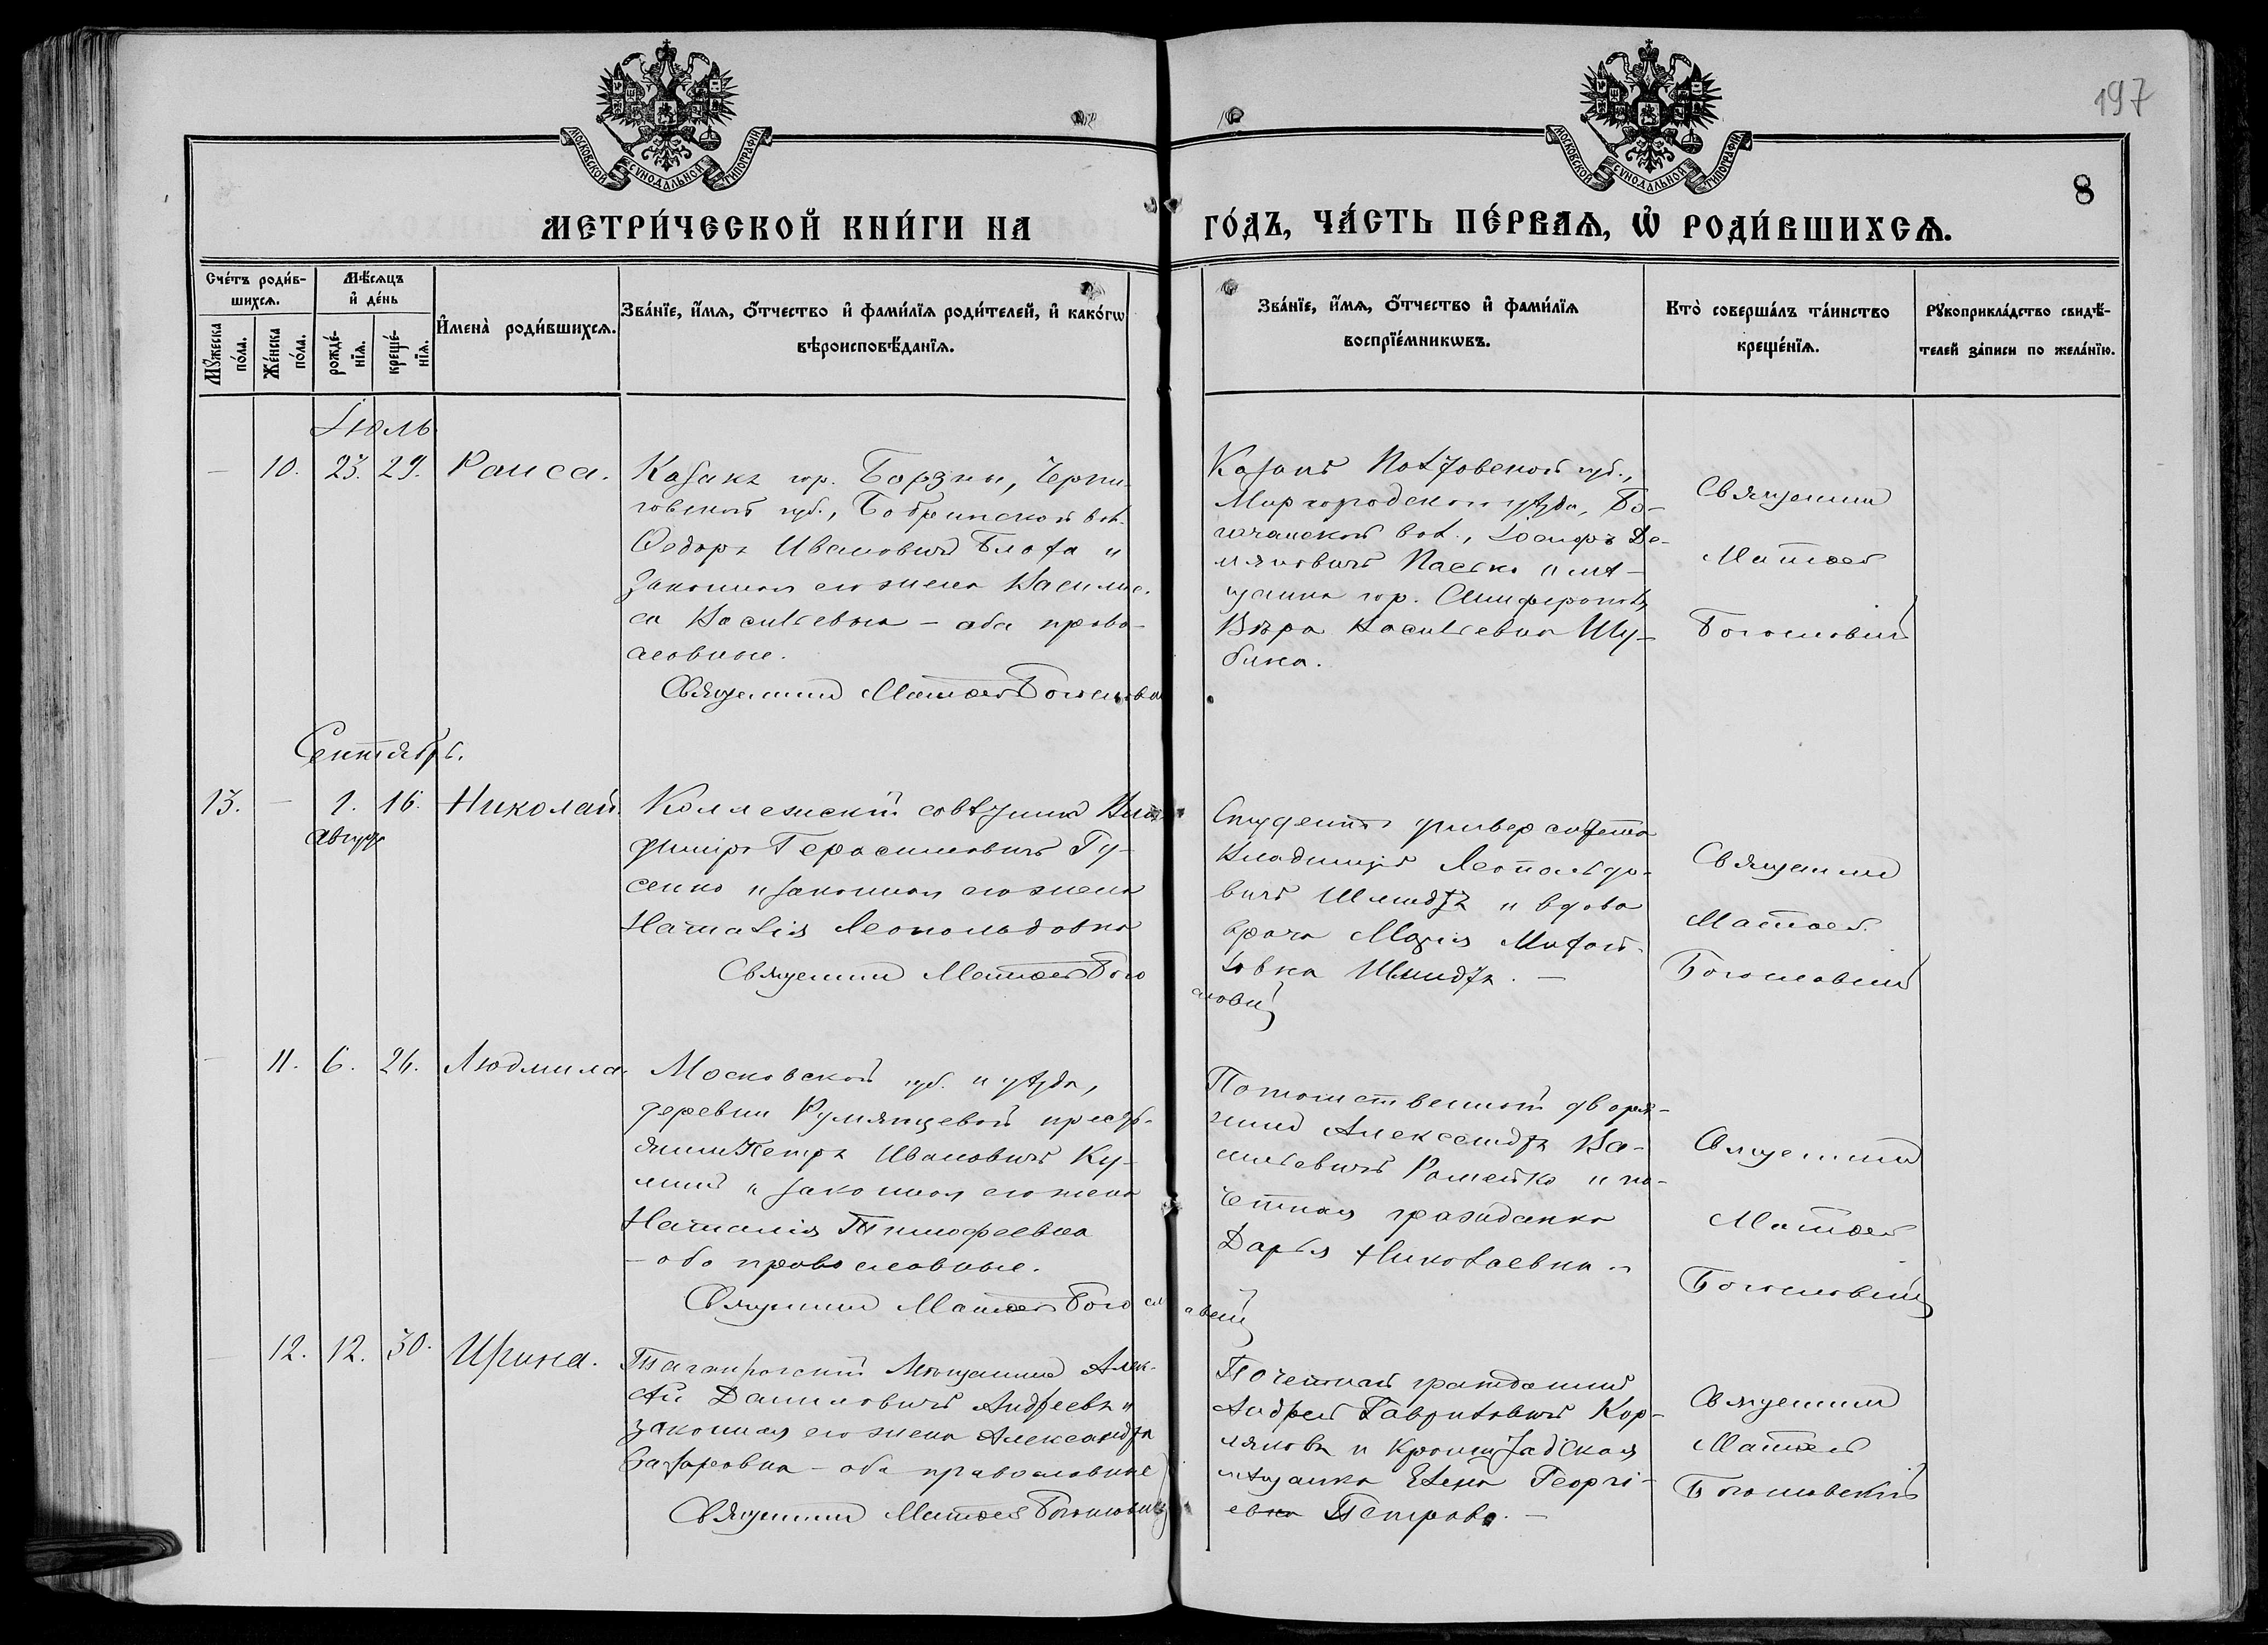 197
МОСКОВСКОЙ СѴНОДАЛЬНОЙ ТИПОГРАФІИ
МОСКОВСКОЙ СѴНОДАЛЬНОЙ ТИПОГРАФІИ
8
МЕТРИ́ЧЕСКОЙ КНИ́ГИ НА ГО́ДЪ, ЧА́СТЬ ПЕ́РВАѦ, Ѡ҆ РОДИ́ВШИХСѦ.
Сче́тъ роди́в-
шихсѧ.
Мꙋ́жеска
по́ла.
Же́нска
по́ла.
Мѣ́сѧцъ
и҆ де́нь
рожде́-
нїѧ.
креще́-
нїѧ.
И҆мена̀ роди́вшихсѧ.
Зва́нїе, и҆́мѧ, ѻ҆́тчество и҆ фами́лїѧ роди́телей, и҆ како́гѡ
вѣроисповѣ́данїѧ.
Зва́нїе, и҆́мѧ, ѻ҆́тчество и҆ фами́лїѧ
воспрїе́мникѡвъ.
Кто̀ соверша́лъ та́инство
креще́нїѧ.
Рꙋкоприкла́дство свидѣ́-
телей за́писи по жела́нїю.
Іюль
— 10. 23. 29. Раиса.
Казакъ гор. Борзны, Черни-
говской губ., вол.
Ѳедоръ Ивановичъ и
законная его жена Васили-
са Васильевна - оба право-
славные.
Священникъ Матѳей Богословскій
Казакъ Полтовской губ.,
Миргородскаго уѣзда,
вол., Іосифъ Де-
мяновичъ и мѣ-
щанка гор. Симферополя
Вѣра Васильевна Шу-
бина.
Священникъ
Матѳей
Богословскій
Сентябрь.
13. — 1. 16. Николай.
Августа
Коллежскій совѣтникъ Вла-
димiръ Герасимовичъ Гу-
сенко и законная его жена
Наталія Леопольдовна
Священникъ Матѳей Бого
словскій
Студентъ университета
Владиміръ Леопольдо-
вичъ Шмидтъ и вдова
врача Марія Михай-
ловна Шмидтъ. —
Священникъ
Матѳей
Богословскій
— 11. 6. 26. Людмила.
Московской губ. и уѣзда,
деревни Румянцевой крестъ-
янинъ Петръ Ивановичъ Ку-
и законная его жена
Наталія Тимофеевна
- оба православные.
Священникъ Матѳей Богословскій
Потомственный дворя-
нинъ Александръ Ва-
сильевичъ Ромейко и по-
четная гражданка
Дарья Николаевна
Священникъ
Матѳей
Богословскій
12. 12. 30. Ирина.
Таганрогскій Мѣщанинъ Алек-
сѣй Даниловичъ Андреевъ и
законная его жена Александра
Лазаревна - оба православные
Священникъ Матѳей Богословскій
Почетный гражданинъ
Андрей Гавриловичъ Кор-
ляковъ и Кронштадтская
мѣщанка Елена Георгі-
евна Петрова. —
Священникъ
Матѳей
Богословскій